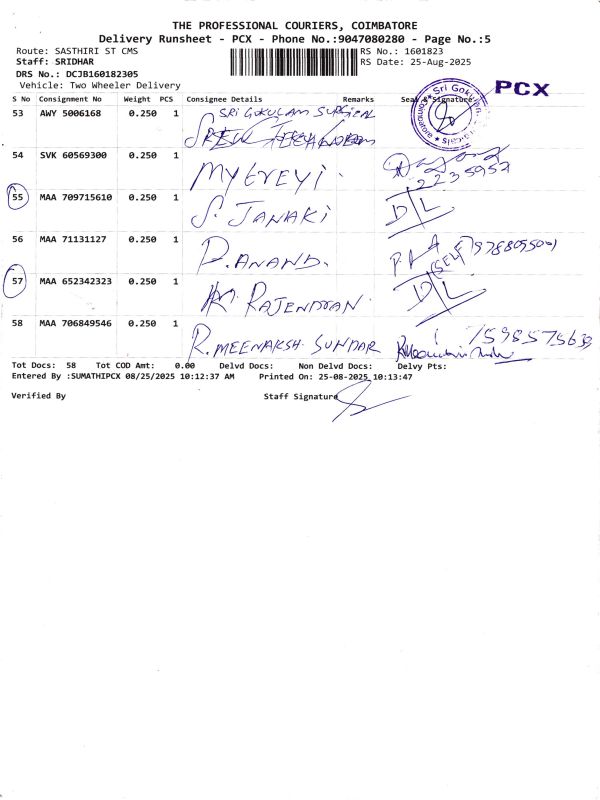 THE PROFESSIONAL COURIERS, COIMBATORE
Delivery Runsheet - PCX - Phone No.:9047080280 - Page No.:5
Route: SASTHIRI ST CMS
RS No.: 1601823
Staff: SRIDHAR
RS Date: 25-Aug-2025
DRS No.: DCJB160182305
Vehicle: Two Wheeler Delivery
PCX
S No Consignment No Weight PCS Consignee Details Remarks Seal & Signature
53 AWY 5006168 0.250 1 SRI GOKULAM SURGICAL
Sri Goku
Coimbatore
54 SVK 60569300 0.250 1 MYTREYI.
55 MAA 709715610 0.250 1 S. JANAKI D/L
56 MAA 71131127 0.250 1 P. ANAND.
SELF
57 MAA 652342323 0.250 1 RAJENDRAN. D/L
58 MAA 706849546 0.250 1 R. MEENAKSH. SUNDAR
Tot Docs: 58 Tot COD Amt: 0.00 Delvd Docs: Non Delvd Docs: Delvy Pts:
Entered By :SUMATHIPCX 08/25/2025 10:12:37 AM Printed On: 25-08-2025 10:13:47
Verified By Staff Signature